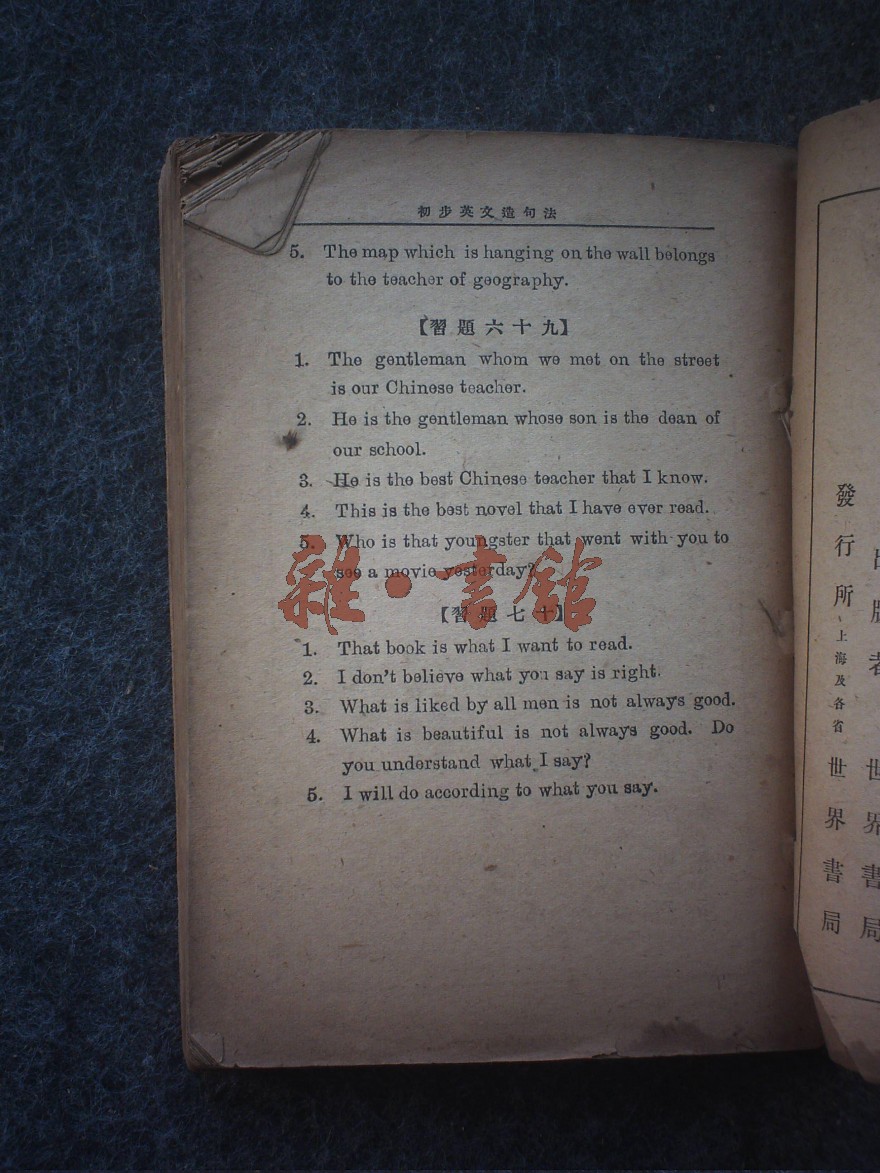 初步英文造句法
5. The map which is hanging on the wall belongs
to the teacher of geography.
【習題六十九】
1. The gentleman whom we met on the street
is our Chinese teacher.
2. He is the gentleman whose son is the dean of
our school.
3. He is the best Chinese teacher that I know.
4. This is the best novel that I have ever read.
5. Who is that youngster that went with you to
see a movie yesterday?
【習題七十】
1. That book is what I want to read.
2. I don't believe what you say is right.
3. What is liked by all men is not always good.
4. What is beautiful is not always good. Do
you understand what I say?
5. I will do according to what you say.
雜·書館
發行所
上海及各省
世界書局
出版者
世界書局